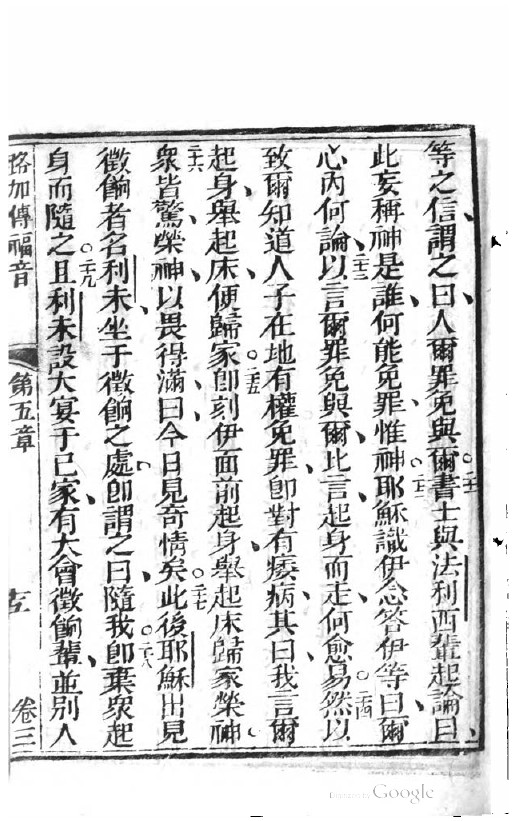 等之信謂之曰人爾罪免與爾。二十一書士與法利西輩起論曰
此妄稱神是誰何能免罪惟神。二十二耶穌識伊念答伊等曰爾
心內何論。二十三以言爾罪免與爾比言起身而走何愈易。二十四然以
致爾知道人子在地有權免罪卽對有痿病其曰我言爾
起身舉起床便歸家。二十五卽刻伊面前起身舉起床歸家榮神。
二十六衆皆驚榮神以畏得滿曰今日見奇情矣。二十七此後耶穌出見
徵餉者名利未坐于徵餉之處卽謂之曰隨我。二十八卽棄衆起
身而隨之。二十九且利未設大宴于己家有大會徵餉輩並別人
路加傳福音 第五章 卷三
Digitized by Google